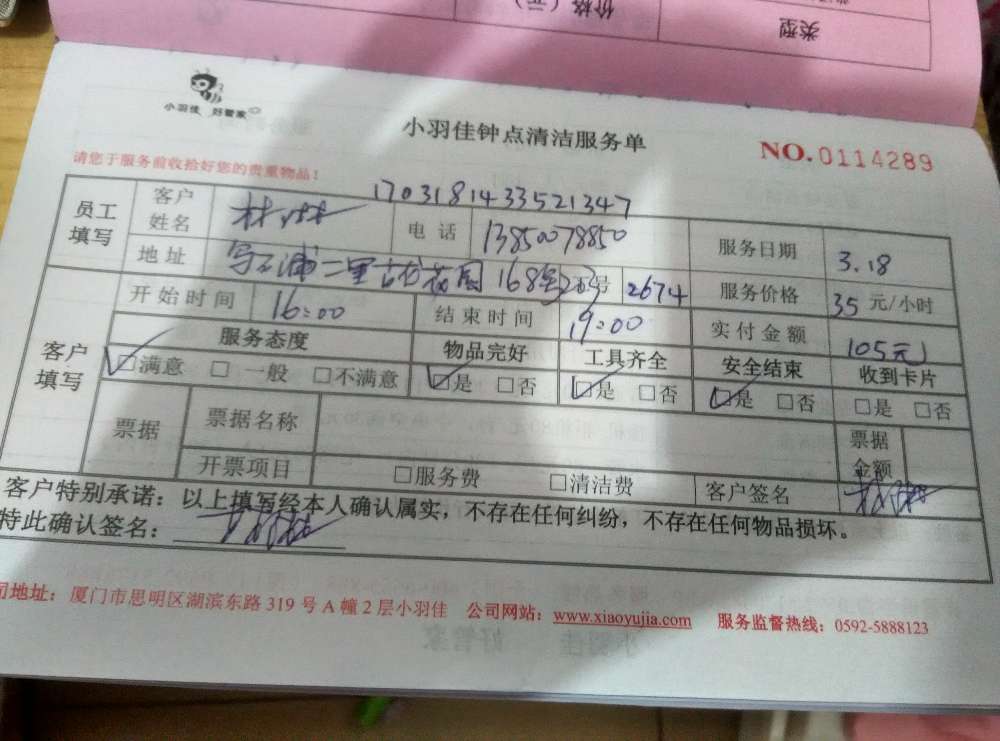 价格（元）
类型
小羽佳 好管家
小羽佳钟点清洁服务单
NO.0114289
请您于服务前收拾好您的贵重物品！
1703181433521347
员工填写 客户姓名 林 电话 13850078850 服务日期 3.18
地址 二里 花园168 号 2674 服务价格 35 元/小时
客户填写 开始时间 16:00 结束时间 19:00 实付金额 105元
服务态度 物品完好 工具齐全 安全结束 收到卡片
☑满意 □一般 □不满意 ☑是 □否 ☑是 □否 ☑是 □否 □是 □否
票据 票据名称 票据金额
开票项目 □服务费 □清洁费 客户签名
客户特别承诺：以上填写经本人确认属实，不存在任何纠纷，不存在任何物品损坏。
特此确认签名：
司地址：厦门市思明区湖滨东路 319 号 A 幢 2 层小羽佳 公司网站：www.xiaoyujia.com 服务监督热线：0592-5888123